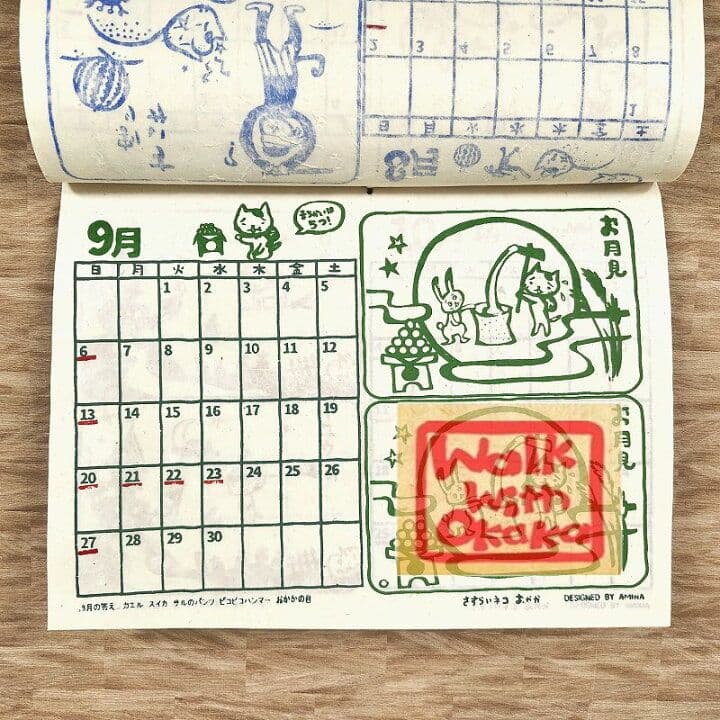 8月
日 月 火 水 木 金 土
1
2 3 4 5 6 7 8
9月
まちがいは
5つ!
日 月 火 水 木 金 土
1 2 3 4 5
6 7 8 9 10 11 12
13 14 15 16 17 18 19
20 21 22 23 24 25 26
27 28 29 30
お月見
お月見
Walk
with
Okaka
9月の答え… カエル スイカ サルのパンツ ピコピコハンマー おかかの目
さすらいネコ おかか
DESIGNED BY AMINA